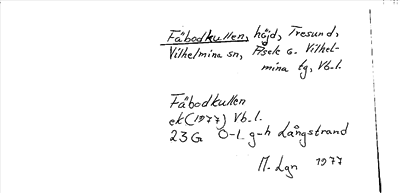 Fäbodkullen, höjd, Tresund,
Vilhelmina sn, Åsele G. Vilhel-
mina tg, Vb.l.
Fäbodkullen
ek (1977) Vb.l.
23 G O-l g-h Långstrand
M. Lgn 1977